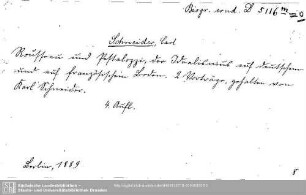 Biogr. erud. D 5116 m
Schneider, Carl
Rousseau und Pestalozzi, der Idealismus auf deutschem
und auf französischem Boden. 2 Vorträge, gehalten von
Karl Schneider.
4. Aufl.
Berlin, 1889
8
Sächsische Landesbibliothek -
Staats- und Universitätsbibliothek Dresden